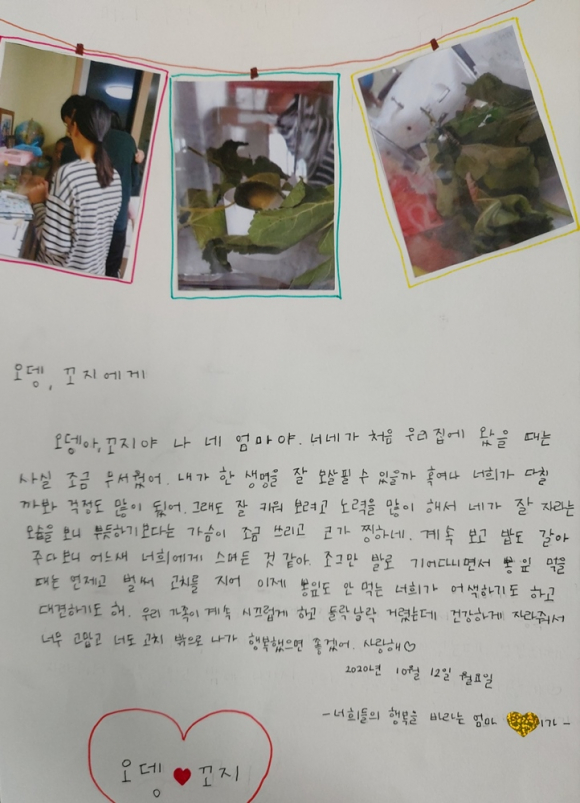 오뎅, 꼬지에게
오뎅아, 꼬지야 나 네 엄마야. 너네가 처음 우리집에 왔을 때는
사실 조금 무서웠어. 내가 한 생명을 잘 보살필 수 있을까 혹여나 너희가 다칠
까봐 걱정도 많이 됬었어. 그래도 잘 키워 보려고 노력을 많이 해서 네가 잘 자라는
모습을 보니 뿌듯하기보다는 가슴이 조금 쓰리고 코가 찡하네. 계속 보고 밥도 갈아
주다보니 어느새 너희에게 스며든 것 같아. 조그만 발로 기어다니면서 뽕잎 먹을
때는 언제고 벌써 고치를 지어 이제 뽕잎도 안 먹는 너희가 어색하기도 하고
대견하기도 해. 우리 가족이 계속 시끄럽게 하고 들락날락 거렸는데 건강하게 자라줘서
너무 고맙고 너도 고치 밖으로 나가 행복했으면 좋겠어. 사랑해♡
2020년 10월 12일 월요일
-너희들의 행복을 바라는 엄마 이가-
오뎅 ♥ 꼬지